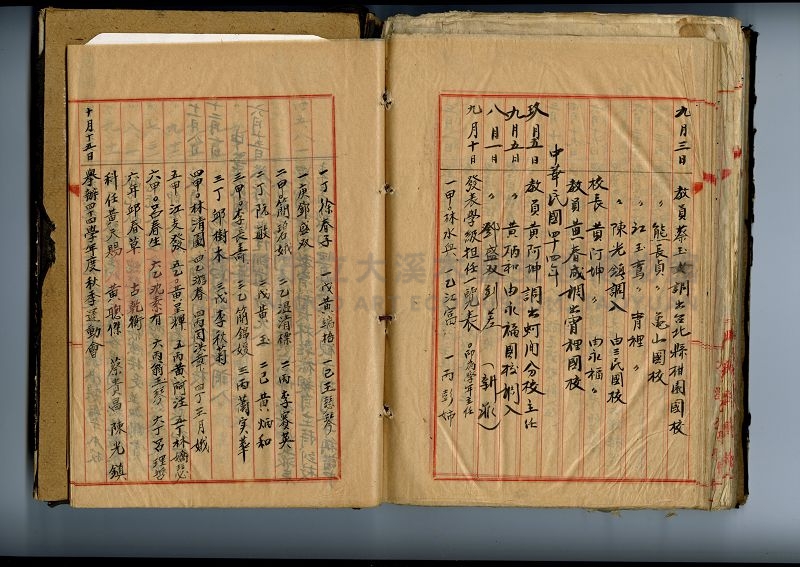 九月三日 教員蔡玉女調出台北縣柑園國校
〃 熊長員 〃 龜山國校
〃 江玉鳶 〃 霄裡 〃
〃 陳光鎮調入 由三民國校
校長 黃阿坤 〃 由永福 〃
教員黃春成調出霄裡國校
中華民國四十四年
玖月五日 教員黃阿坤調出蚵間分校主任
九月五日 〃 黃炳和由永福國校調入
八月一日 〃 鄧盛双到差(新派)
九月十日 發表學級担任一覧表 ○印為學年主任
一甲林水興 一乙江富 一丙彭姉
一丁徐春子 一戊黃瑞招 一己王慧琴
一庚鄧盛双
二甲簡碧娥 二乙温清標 二丙李賽英
二丁阮敏 二戊黃玉 二己黃炳和
三甲李長壽 三乙簡錦媛 三丙蕭寅華
三丁邱樹木 三戊李秋莉
四甲林清園 四乙游春 四丙周洪華 四丁王月娥
五甲江支發 五乙黃呈輝 五丙黃阿注 五丁林嬌慧
六甲呂春生 六乙沈秦有 六丙翁玉琴 六丁呂理
六年邱春草 古乾衛
科任黃天賜 黃聰傑 蔡貴昌 陳光鎮
十月廿五日 舉辦四四學年度秋季運動會